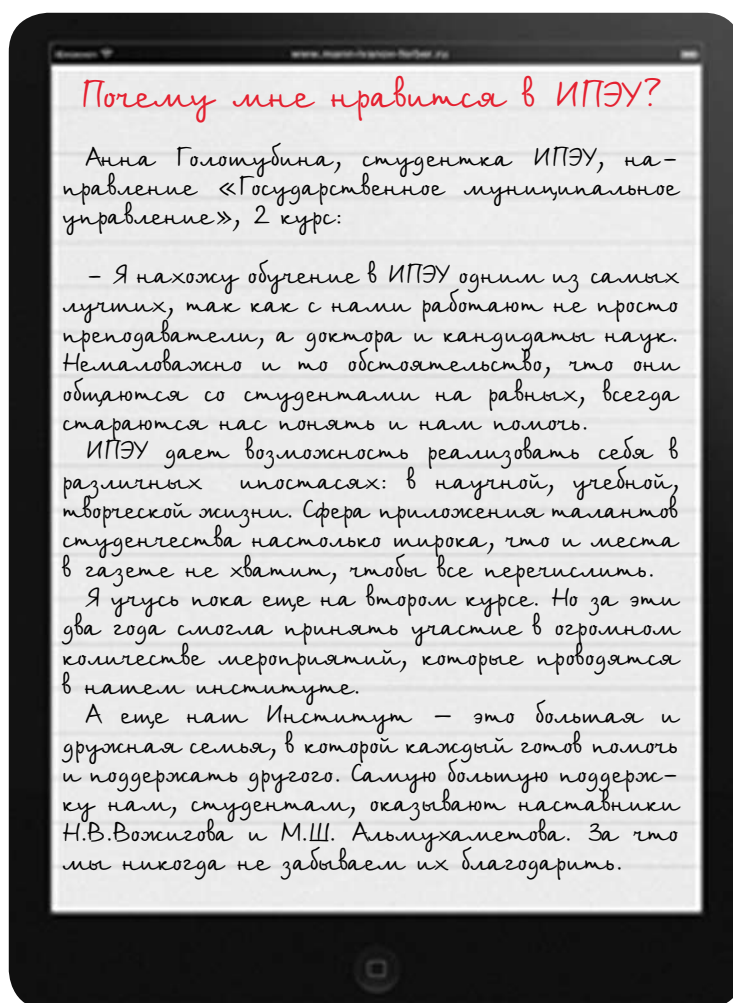 www.mann-ivanov-ferber.ru
Почему мне нравится в ИПЭУ?
Анна Голотубина, студентка ИПЭУ, на-
правление «Государственное муниципальное
управление», 2 курс:
– Я нахожу обучение в ИПЭУ одним из самых
лучших, так как с нами работают не просто
преподаватели, а доктора и кандидаты наук.
Немаловажно и то обстоятельство, что они
общаются со студентами на равных, всегда
стараются нас понять и нам помочь.
ИПЭУ дает возможность реализовать себя в
различных ипостасях: в научной, учебной,
творческой жизни. Сфера приложения талантов
студенчества настолько широка, что и места
в газете не хватит, чтобы все перечислить.
Я учусь пока еще на втором курсе. Но за эти
два года смогла принять участие в огромном
количестве мероприятий, которые проводятся
в нашем институте.
А еще наш Институт – это большая и
дружная семья, в которой каждый готов помочь
и поддержать другого. Самую большую поддерж-
ку нам, студентам, оказывают наставники
Н.В.Вожигова и М.Ш. Альмухаметова. За что
мы никогда не забываем их благодарить.